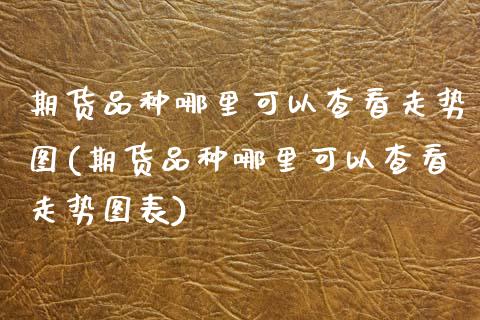 期货品种哪里可以查看走势
图(期货品种哪里可以查看
走势图表)